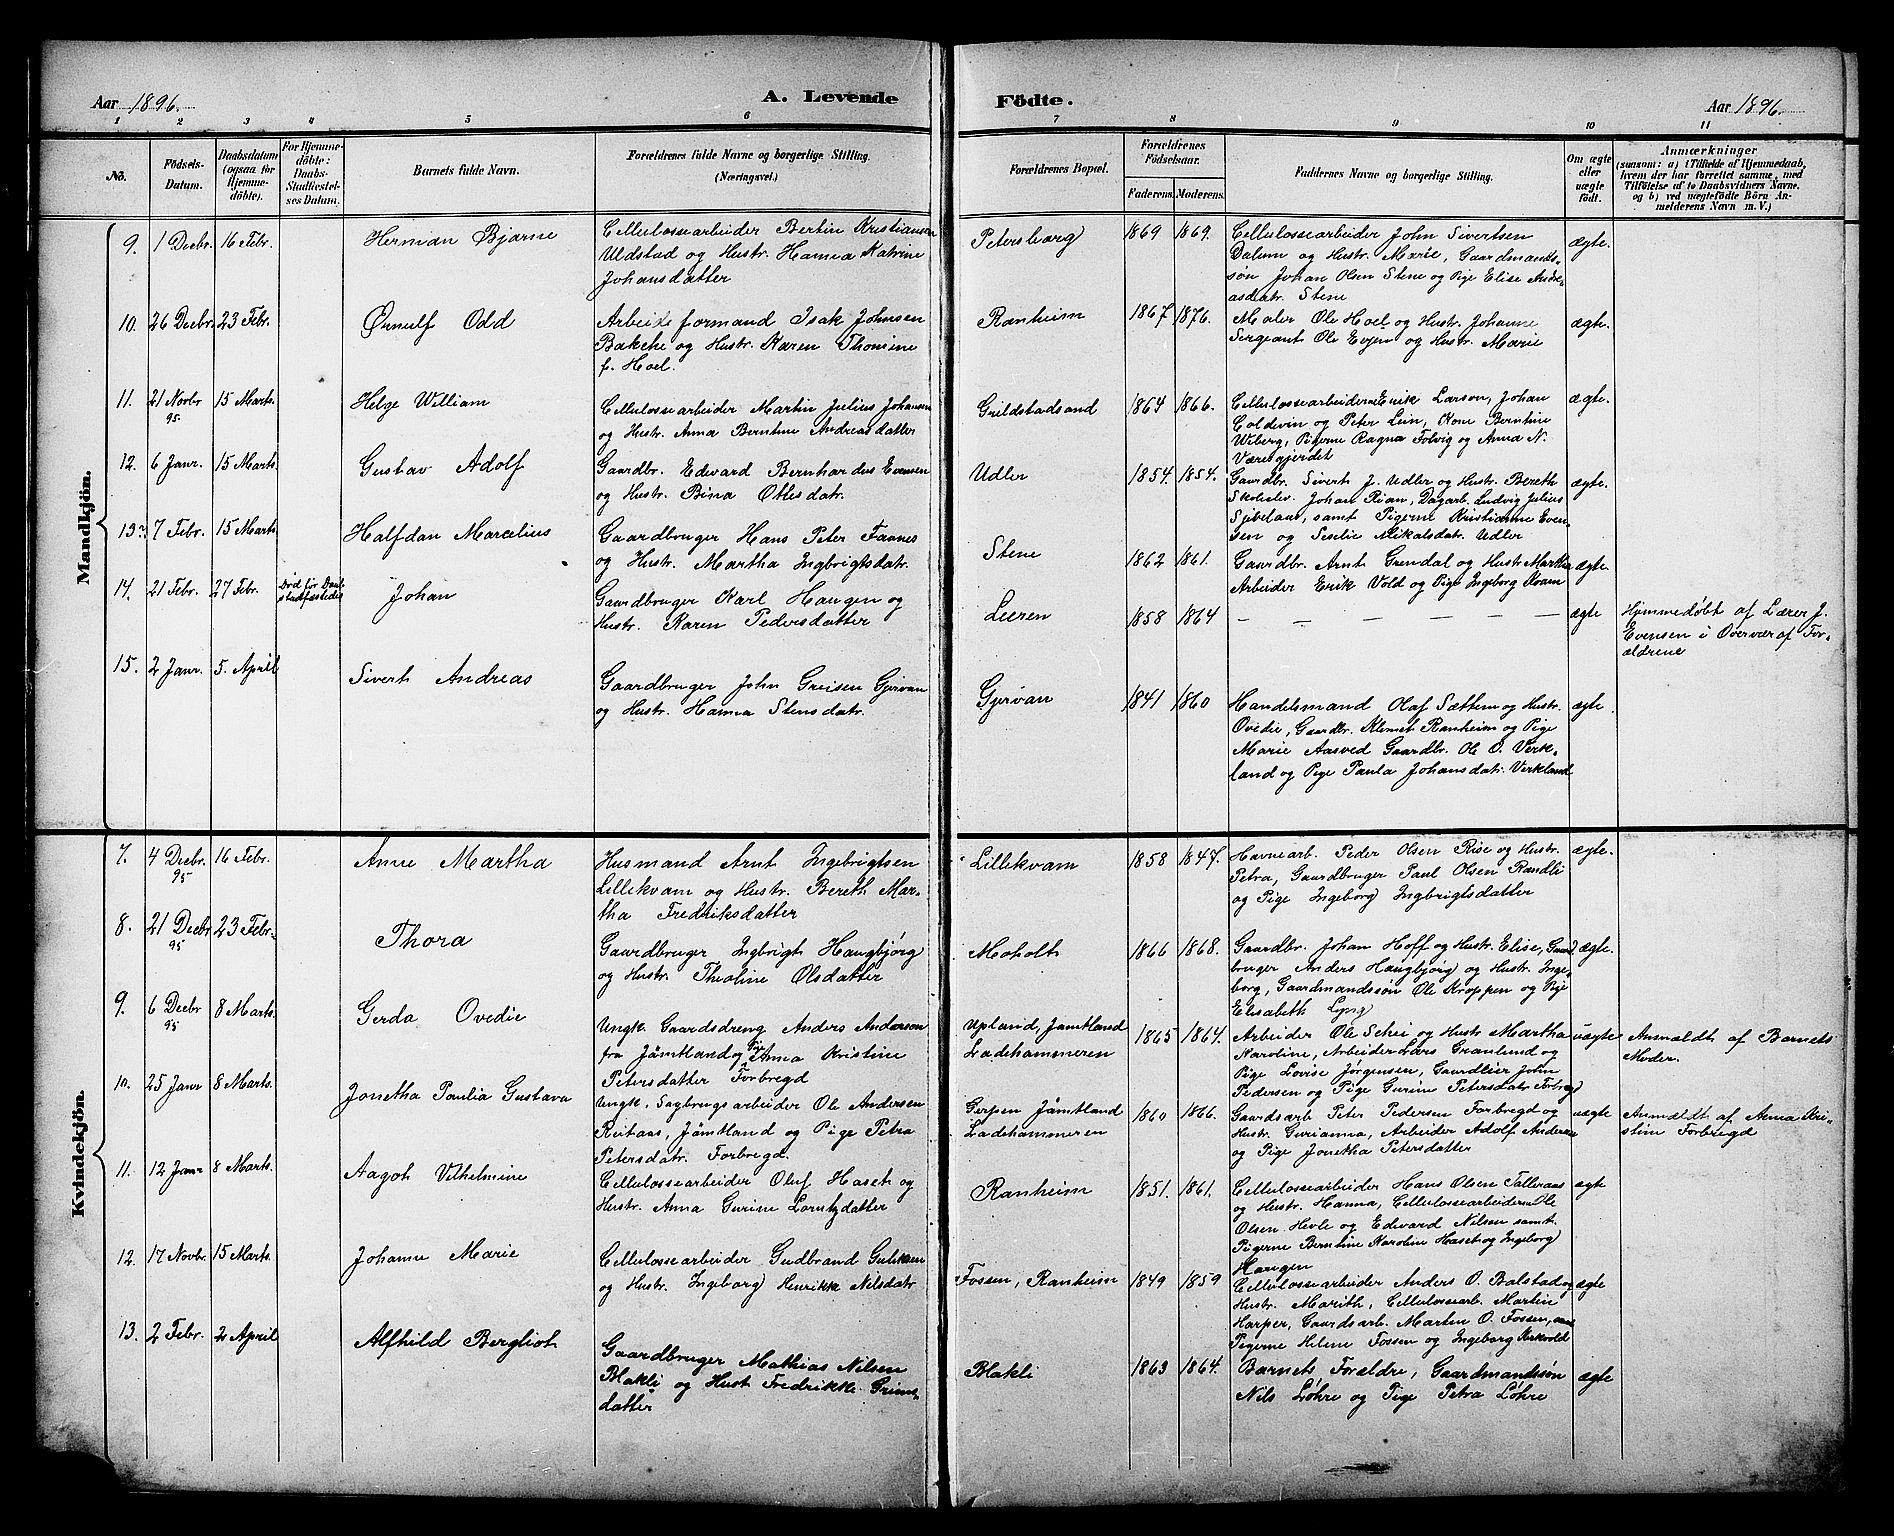 Aar 1896.
A. Levende
Födte.
Aar 1896.
1 2 3 4 5 6 7 8 9 10 11
No.
Födsels-
Datum.
Daabsdatum
(ogsaa for
Hjemme-
döbte).
For Hjemme-
döbte:
Daabs-
Stadfæstel-
ses Datum.
Barnets fulde Navn.
Forældrenes fulde Navne og borgerlige Stilling.
(Næringsvei.)
Forældrenes Bopæl.
Forældrenes
Födselsaar.
Faderens. Moderens.
Faddernes Navne og borgerlige Stilling.
Om ægte
eller
uægte
födt.
Anmærkninger
(saasom: a) i Tilfælde af Hjemmedaab,
hvem der har forrettet samme, med
Tilföielse af to Daabsvidners Navne.
og b) ved uægtefödte Börn An-
melderens Navn m. V.)
Mandkjön.
9. 1 Decbr. 16 Febr. Herman Bjarne
Cellulossearbeider Bertin Kristiansen
Uldstad og Hustr. Hanna Katrine
Johansdatter
Petersborg 1869 1869.
Cellulossearbeider John Sivertsen
Dalum og Hustr. Marie, Gaardmands-
søn Johan Olsen Stene og Pige Elise Andre-
asdatr. Stene
ægte.
10. 26 Decbr. 23 Febr. Ørnulf Odd
Arbeidsformand Isak Johnsen
Bakke og Hustr. Karen Thomine
f. Hoel.
Ranheim 1867 1876.
Maler Ole Hoel og Hustr. Johanne
Sergeant Ole Evjen og Hustr. Marie
ægte.
11. 21 Novbr 95 15 Marts. Helge William
Cellulossearbeider Martin Julius Johansen
og Hustr. Anna Berntine Andreasdatter
Grildstadsand 1864 1866.
Cellulossearbeiderne Erik Larson, Johan
Coldevin og Peter Lein, Kone Berntine
Wiberg, Pigerne Ragna Folvig og Anna N.
Væresgjerdet
ægte.
12. 6 Janr. 15 Marts. Gustav Adolf
Gaardbr. Edvard Bernhardus Evensen
og Hustr. Bina Ottesdatr.
Udler 1854. 1854.
Gaardbr. Sivert J. Udler og Hustr. Bereth
Skolelær. Johan Rian, Dagarb. Ludvig Julius
Sjibelaar, samt Pigerne Kristianne Even-
sen og Seselie Mikalsdatr. Udler
ægte.
13. 7 Febr. 15 Marts Halfdan Marcelius
Gaardbruger Hans Peter Faanes
og Hustr. Martha Ingbrigtsdatr.
Stene 1862 1861.
Gaardbr. Arnt Grendal og Hustr Martha
Arbeider Erik Vold og Pige Ingeborg Kvam
ægte.
14. 21 Febr. 27 Febr. Død før Daab-
stadfæstedes Johan
Gaardbruger Karl Haugen og
Hustr. Karen Pedersdatter
Leeren 1858 1864
— — — — — —
ægte
Hjemmedøbt af Lærer J.
Evensen i Overvær af For-
ældrene
15. 2 Janr. 5. April Sivert Andreas
Gaardbruger John Greisen Gjervan
og Hustr. Hanna Stensdatr.
Gjervan 1841 1860
Handelsmand Olaf Sættem og Hustr.
Ovedie, Gaardbr. Klemet Ranheim og Pige
Marie Aasved Gaardbr. Ole O. Virk-
land og Pige Paula Johansdatr. Virkland
ægte.
Kvindekjön.
7. 4 Decbr. 95 16 Febr. Anne Martha
Husmand Arnt Ingebrigtsen
Lillekvam og Hustr. Bereth Mar-
tha Fredriksdatter
Lillekvam 1858 1847.
Havnearb. Peder Olsen Rise og Hustr.
Petra, Gaardbruger Paul Olsen Randli
og Pige Ingeborg Ingbrigtsdatter
ægte.
8. 21 Decbr 95 23 Febr. Thora
Gaardbruger Ingbrigt Haugbjørg
og Hustr. Theoline Olsdatter
Moholt 1866 1868.
Gaardbr. Johan Hoff og Hustr. Elise, Gaard-
bruger Anders Haugbjørg og Hustr. Inge-
borg, Gaardmandssøn Ole Kroppen og Pige
Elisabeth Lyng
ægte.
9. 6 Decbr 95 8 Marts. Gerda Ovedie
Ungk. Gaardsdreng Anders Anderson
fra Jämtland og Pige Anna Kristine
Petersdatter Forbregd
Upland, Jämtland
Ladehammeren 1865 1864.
Arbeider Ole Schei og Hustr Martha
Karoline, Arbeider Lars Granlund og
Pige Lovise Jørgensen, Gaardleier John
Pedersen og Pige Gurine Petersdatr Forbregd
uægte
Anmeldt af Barnets
Moder.
10. 25 Janr 8 Marts. Jonetha Paulia Gustava
Ungk. Sagbrugsarbeider Ole Andersen
Rutaas, Jämtland og Pige Petra
Petersdatr. Forbregd.
Gerpen Jämtland
Ladehammeren 1860 1866.
Gaardsarb Peter Pedersen Forbregd og
Hustr. Gurianna, Arbeider Adolf Andersen
og Pige Jonetha Petersdatter
uægte
Anmeldt af Anna Kri-
stine Forbregd
11. 12 Janr 8 Marts. Aagot Vilhelmine
Cellulossearbeider Oluf Haset og
Hustr. Anna Gurine Lorntzdatter
Ranheim 1851. 1861.
Cellulossearbeider Hans Olsen Talleraas
og Hustr. Hanna, Cellulossearbeiderne Ole
Olsen Hevle og Edvard Nilsen samt.
Pigerne Berntine Karoline Haset og Ingeborg
Haugen
ægte
12. 17 Novbr. 15 Marts. Johanne Marie
Cellulossearbeider Gudbrand Guliksen
og Hustr. Ingeborg Henrikke Nilsdatr
Fossen, Ranheim 1849 1859
Cellulossearbeider Anders O. Balstad og
Hustr. Marith, Cellulossearb. Martin
Harper, Gaardsarb. Marten O. Fossen, samt
Pigerne Helene Fossen og Ingeborg Kirkvold
ægte
13. 2 Febr. 2 April Alfhild Bergliot
Gaardbruger Mathias Nilsen
Blakli og Hust Fredrikke Grims-
datter
Blakli 1863 1864.
Barnets Forældre, Gaardmandssøn
Nils Løhre og Pige Petra Løhre
ægte